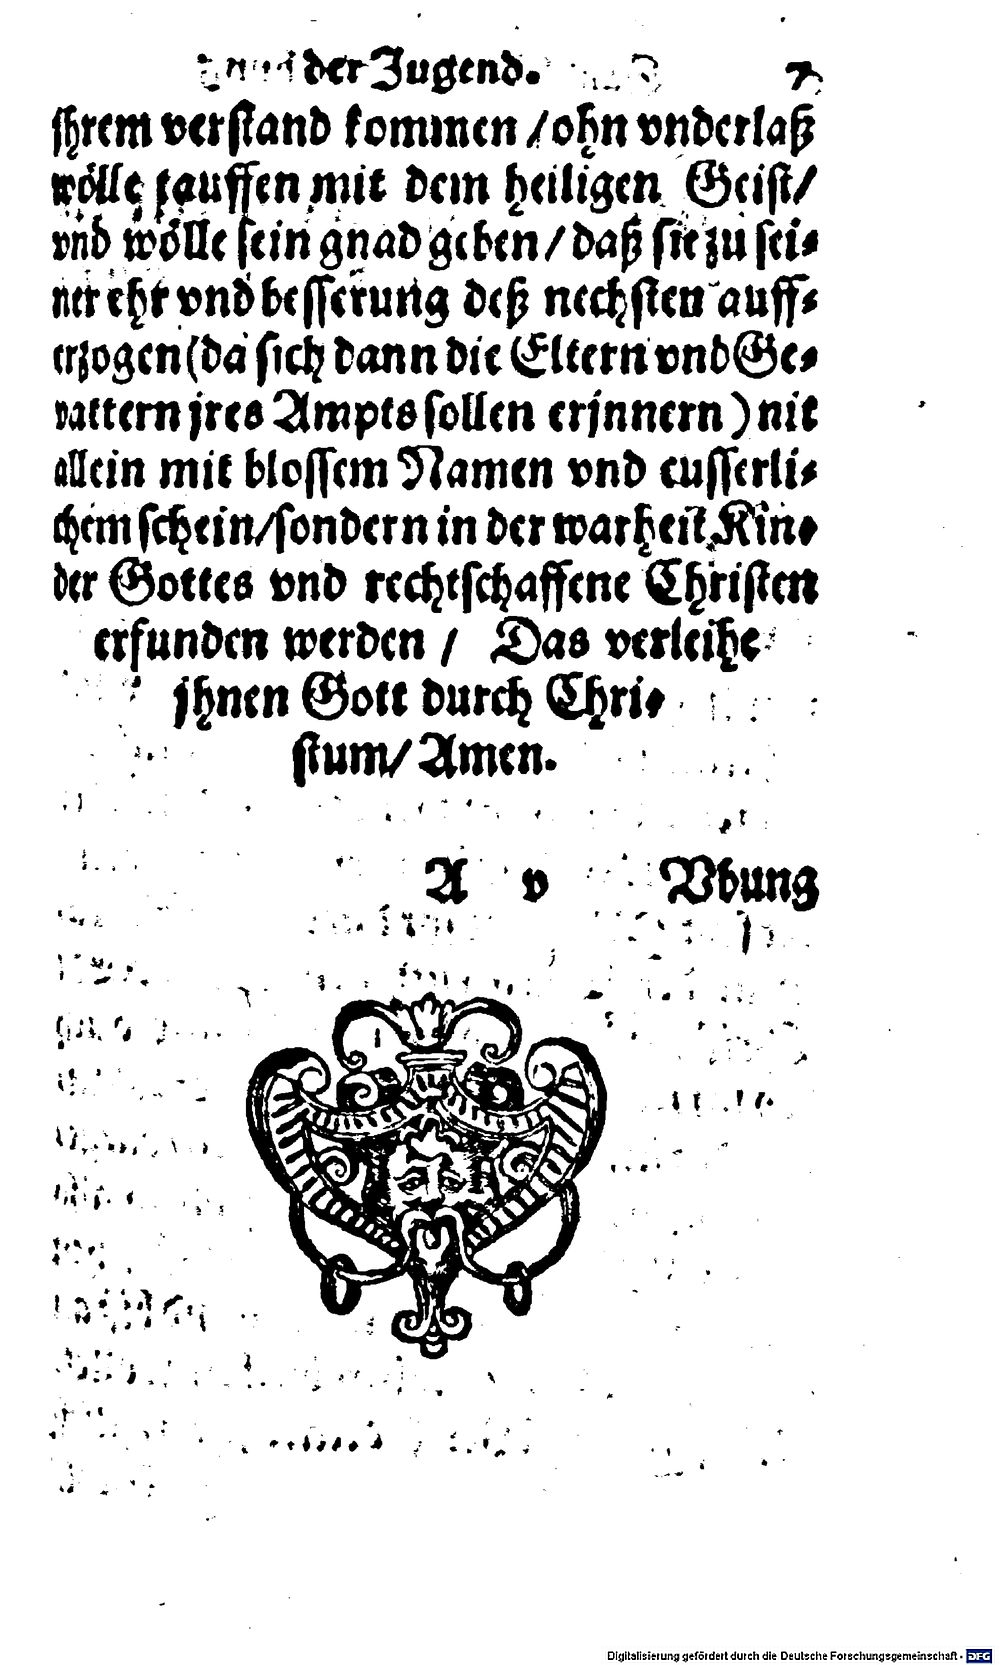 der Jugend. 7
jhrem verstand kommen / ohn vnderlaß
wölle tauffen mit dem heiligen Geist/
vnd wölle sein gnad geben / daß sie zu sei⸗
ner ehr vnd besserung deß nechsten auff⸗
erzogen (da sich dann die Eltern vnd Ge⸗
vattern jres Ampts sollen erjnnern) nit
allein mit blossem Namen vnd eusserli⸗
chem schein/sondern in der warheit Kin⸗
der Gottes vnd rechtschaffene Christen
erfunden werden / Das verleihe
jhnen Gott durch Chri⸗
stum/ Amen.
A v Vbung
Digitalisierung gefördert durch die Deutsche Forschungsgemeinschaft - DFG